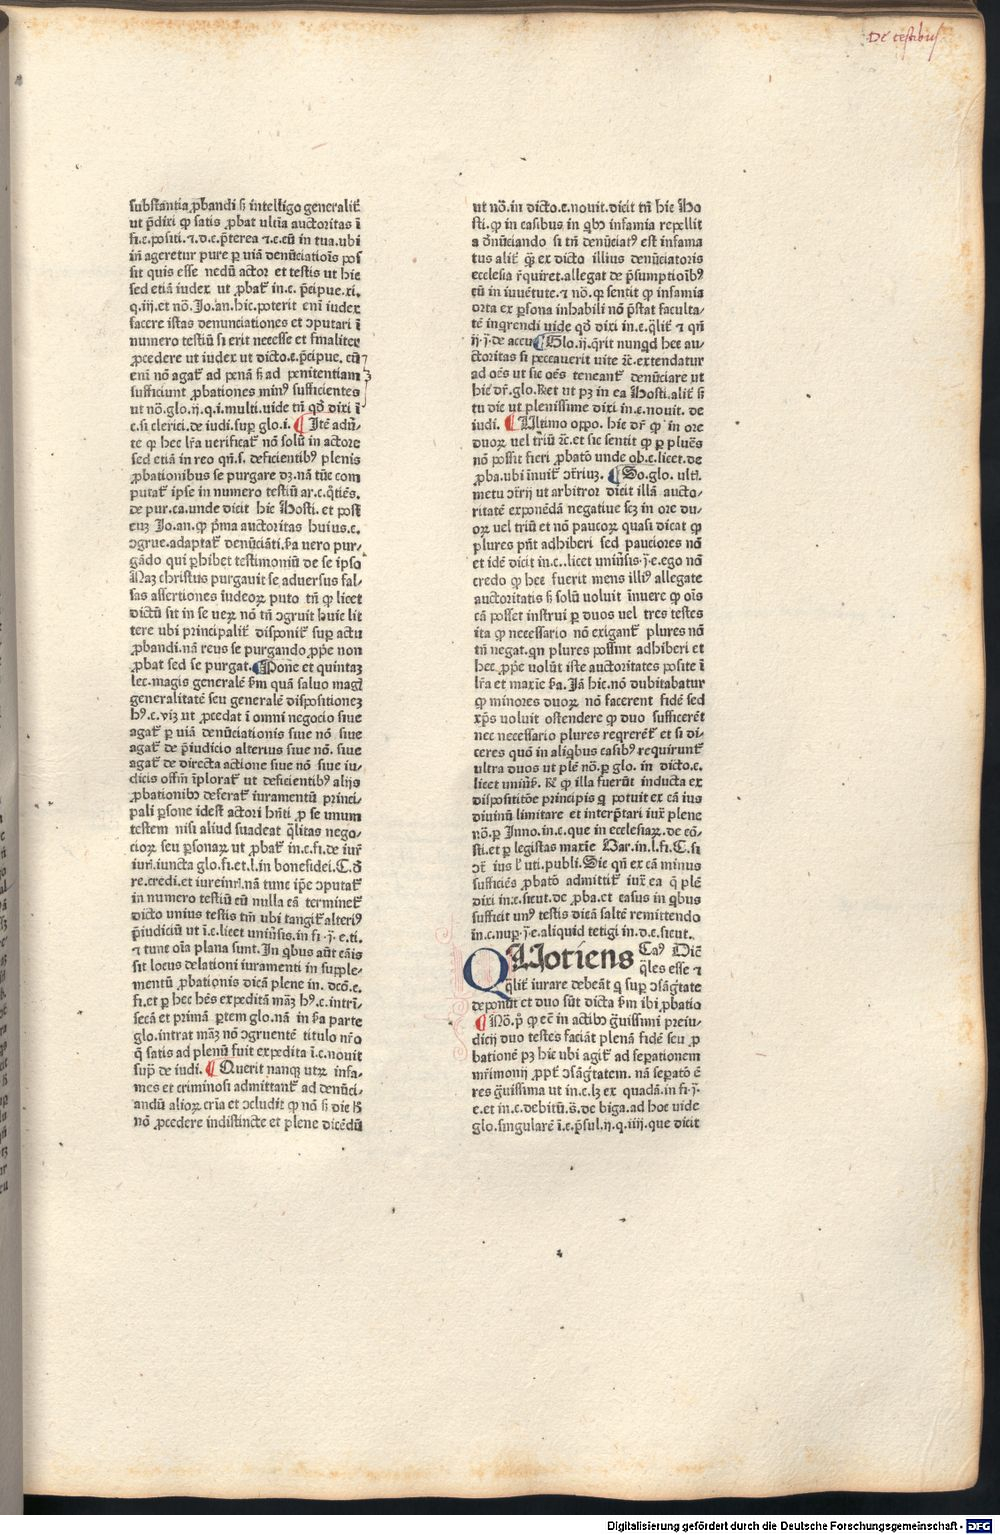 De testibus
substantia ꝓbandi sꝫ intelligo generalit̕
ut p̄dixi ꝙ satis ꝓbat ultīa auctoritas ī
fi.c.positi.⁊.d.c.p̄terea ⁊.c.cū in tua.ubi
iñ ageretur pure ꝑ uiā denūciatiōis pos
sit quis esse nedū actor et testis ut hic
sed etiā iudex ut ꝓbat̕ in.c.p̄cipue.xi.
q.iij.et nō.Jo.an.hic.poterit eni iudex
facere istas denunciationes et ↄputari ī
numero testiū si erit necesse et finaliter
ꝓcedere ut iudex ut dicto.c.p̄cipue.cū
eni nō agat̕ ad penā sꝫ ad penitentiam
sufficiunt ꝓbationes minꝰ sufficientes
ut nō.glo.ij.q.i.multi.uide tñ qđ dixi ī
c.si clerici.de iudi.suꝑ glo.i. Itē adū/
te ꝙ hec lr̄a uerificat̕ nō solū in actore
sed etiā in reo qñ.s.deficientibꝰ plenis
ꝓbationibus se purgare dꝫ.nā tūc com
putat̕ ipse in numero testiū ar.c.q̄tiēs.
de pur.ca.unde dicit hic Hosti.et post
euꝫ Jo.an.ꝙ p̄ma auctoritas huius.c.
ↄgrue.adaptat̕ denūciāti.ẜa uero pur/
gādo qui ꝑhibet testimoniū de se ipso
Naꝫ christus purgauit se aduersus fal/
sas assertiones iudeoꝝ puto tñ ꝙ licet
dictū sit in se ueꝝ nō tñ ↄgruit huic lit
tere ubi principalit̕ disponit̕ suꝑ actu
ꝓbandi.nā reus se purgando ꝓp̄e non
ꝓbat sed se purgat. Pone et quintaꝫ
lec.magis generalē ẜm quā saluo magḷ
generalitatē seu generalē dispositionez
hꝰ.c.viꝫ ut ꝓcedat ī omni negocio siue
agat̕ ꝑ uiā denūciationis siue nō siue
agat̕ de p̄iudicio alterius siue nō.siue
agat̕ de directa actione siue nō siue iu/
dicis offm̄ īplorat̕ ut deficientibꝰ alijs
ꝓbationibꝰ deferat̕ iuramentū princi/
pali ꝑsone idest actori hñti ꝓ se unum
testem nisi aliud suadeat q̄litas nego/
cioꝝ seu ꝑsonaꝝ ut ꝓbat̕ in.c.fi.de iur̕
iurī.iuncta glo.fi.et.l.in bonefidei.C.đ
re.credi.et iureinr̄.nā tunc ip̄e ↄputat̕
in numero testiū eū nulla cā terminet̕
dicto unius testis tm̄ ubi tangit̕ alteriꝰ
p̄iudiciū ut ī.c.licet uniūsis.in fi.ȷ̄.e.ti.
⁊ tunc oīa plana sunt.In qbus aūt cāis
sit locus delationi iuramenti in supple/
mentū ꝓbationis dicā plene in.dcō.c.
fi.et ꝑ hec hēs expeditā māꝫ hꝰ.c.intrī/
secā et primā ꝑtem glo.nā in ẜa parte
glo.intrat māꝫ nō ↄgruentē titulo nr̄o
q̄ satis ad plenū fuit expedita ī.c.nouit
suꝑ de iudi. Querit nanqꝫ utꝝ infa/
mes et criminosi admittant̕ ad denūci/
andū alioꝝ crīa et ↄcludit ꝙ nō sꝫ dic ẜ
nō ꝓcedere indistincte et plene dicēdū
ut nō.in dicto.c.nouit.dicit tñ hic Ho
sti.ꝙ in casibus in qbꝰ infamia repellit
a đnūciando si tñ denūciatꝰ est infama
tus alit̕ q̄ꝫ ex dicto illius denūciatoris
ecclesia r̄quiret.allegat de p̄sumptioībꝰ
cū in iuuētute.⁊ nō.ꝙ sentit ꝙ infamia
orta ex ꝑsona inhabili nō p̄stat faculta/
tē inqrendi uide qđ dixi in.c.q̄lit̕ ⁊ qñ
ij.ȷ̄.de accu Glo.ij.q̄rit nunqd hec au/
ctoritas si peccauerit uite ꝛc.extendatur
ad oēs ut sic oēs teneant̕ denūciare ut
hic dr̄.glo.R̄et ut pꝫ in ea Hosti.alit̕ sꝫ
tu dic ut plenissime dixi in.c.nouit.de
iudi. Ultimo oppo.hic dr̄ ꝙ in ore
duoꝝ uel triū ꝛc.et sic sentit ꝙ ꝑ plues̄
nō possit fieri ꝓbatō unde ob.c.licet.de
ꝓba.ubi īnuit̕ ↄt̄riuꝫ. So.glo.ultī.
metu ↄtrīj ut arbitror dicit illā aucto/
ritatē exponēdā negatiue scꝫ in ore du/
oꝝ uel triū et nō paucoꝝ quasi dicat ꝙ
plures pn̄t adhiberi sed pauciores nō
et idē dicit in.c..licet uniūsis.ȷ̄.e.ego nō
credo ꝙ hec fuerit mens illiꝰ allegate
auctoritatis sꝫ solū uoluit īnuere ꝙ oīs
cā posset instrui ꝑ duos uel tres testes
ita ꝙ necessario nō exigant̕ plures nō
tñ negat.qn plures possint adhiberi et
hec ꝓp̄e uolūt iste auctoritates posite ī
lr̄a et maxīe ẜa.Jā hic.nō dubitabatur
ꝙ minores duoꝝ nō facerent fidē sed
xp̄s uoluit ostendere ꝙ duo sufficerēt
nec necessario plures reqrerēt̕ et si di/
ceres quō in aliqbus casibꝰ requirunt̕
ultra duos ut plē nō.ꝑ glo.in dicto.c.
licet uniūẜ.R̄ ꝙ illa fuerūt inducta ex
dispositiōe principis q potuit ex cā ius
diuinū limitare et interp̄tari iux̄ plene
nō.ꝑ Inno.in.c.que in ecclesiaꝝ.de cō/
sti.et ꝑ legistas maxīe Bar.in.l.fi.C.si
ↄt̄ ius ł uti.publi.Sic qñ ex cā minus
sufficiēs ꝓbatō admittit̕ iux̄ ea q̄ plē
dixi in.c.sicut.de ꝓba.et casus in qbus
sufficit unꝰ testis dicā saltē remittendo
in.c.nuꝑ.ȷ̄.e.aliquid tetigi in.d.c.sicut.
QUotiens Caꝰ Dic̄
q̄les esse ⁊
q̄lit̕ iurare debeāt q suꝑ ↄsāḡtate
deponūt et duo sūt dicta ẜm ibi ꝓbatio
Nō.p̊ ꝙ eē in actibꝰ ḡuissimi preiu/
dicij duo testes faciāt plenā fidē seu ꝓ
bationē pꝫ hic ubi agit̕ ad seꝑationem
mr̄imonij ꝓpt̕ ↄsāḡtatem.nā seꝑatō ē
res ḡuissima ut in.c.lꝫ ex quadā.in fi.ȷ̄.
e.et in.c.debitū.s̄.de biga.ad hoc uide
glo.singularē ī.c.p̄sul.ij.q.iiij.que dicit
Digitalisierung gefördert durch die Deutsche Forschungsgemeinschaft - DFG